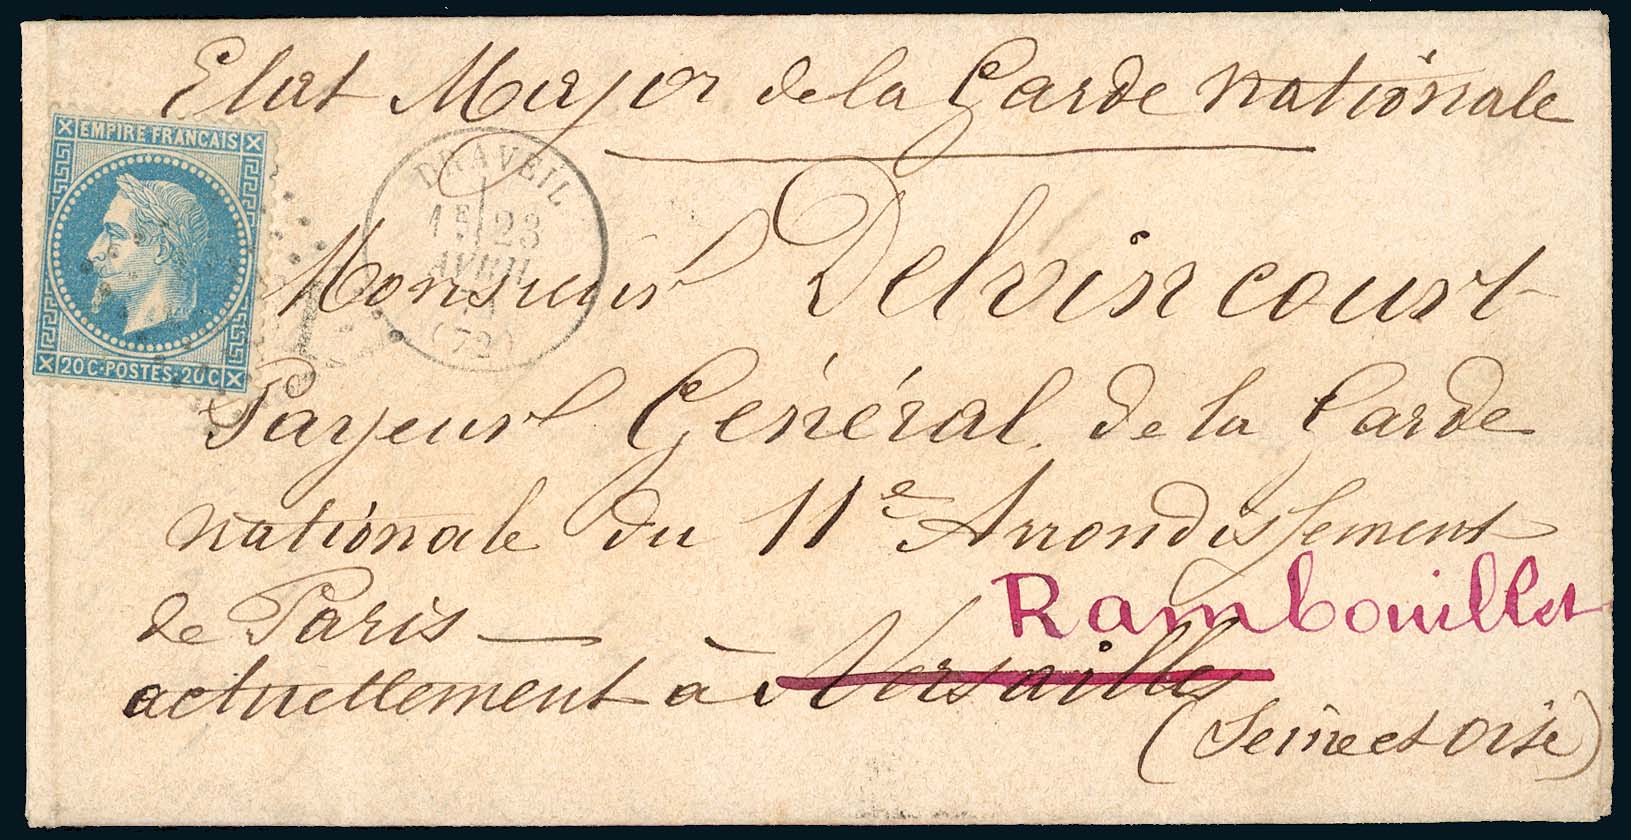 Etat Major de la Garde nationale
EMPIRE FRANÇAIS
20 C·POSTES·20 C
DRAVEIL
1E 23
AVRIL
71
(72)
Monsieur Delvincourt
Payeur Général de la Garde
nationale du 11e Arrondissement
de Paris —
Rambouillet
actuellement à Versailles
(Seine et Oise)